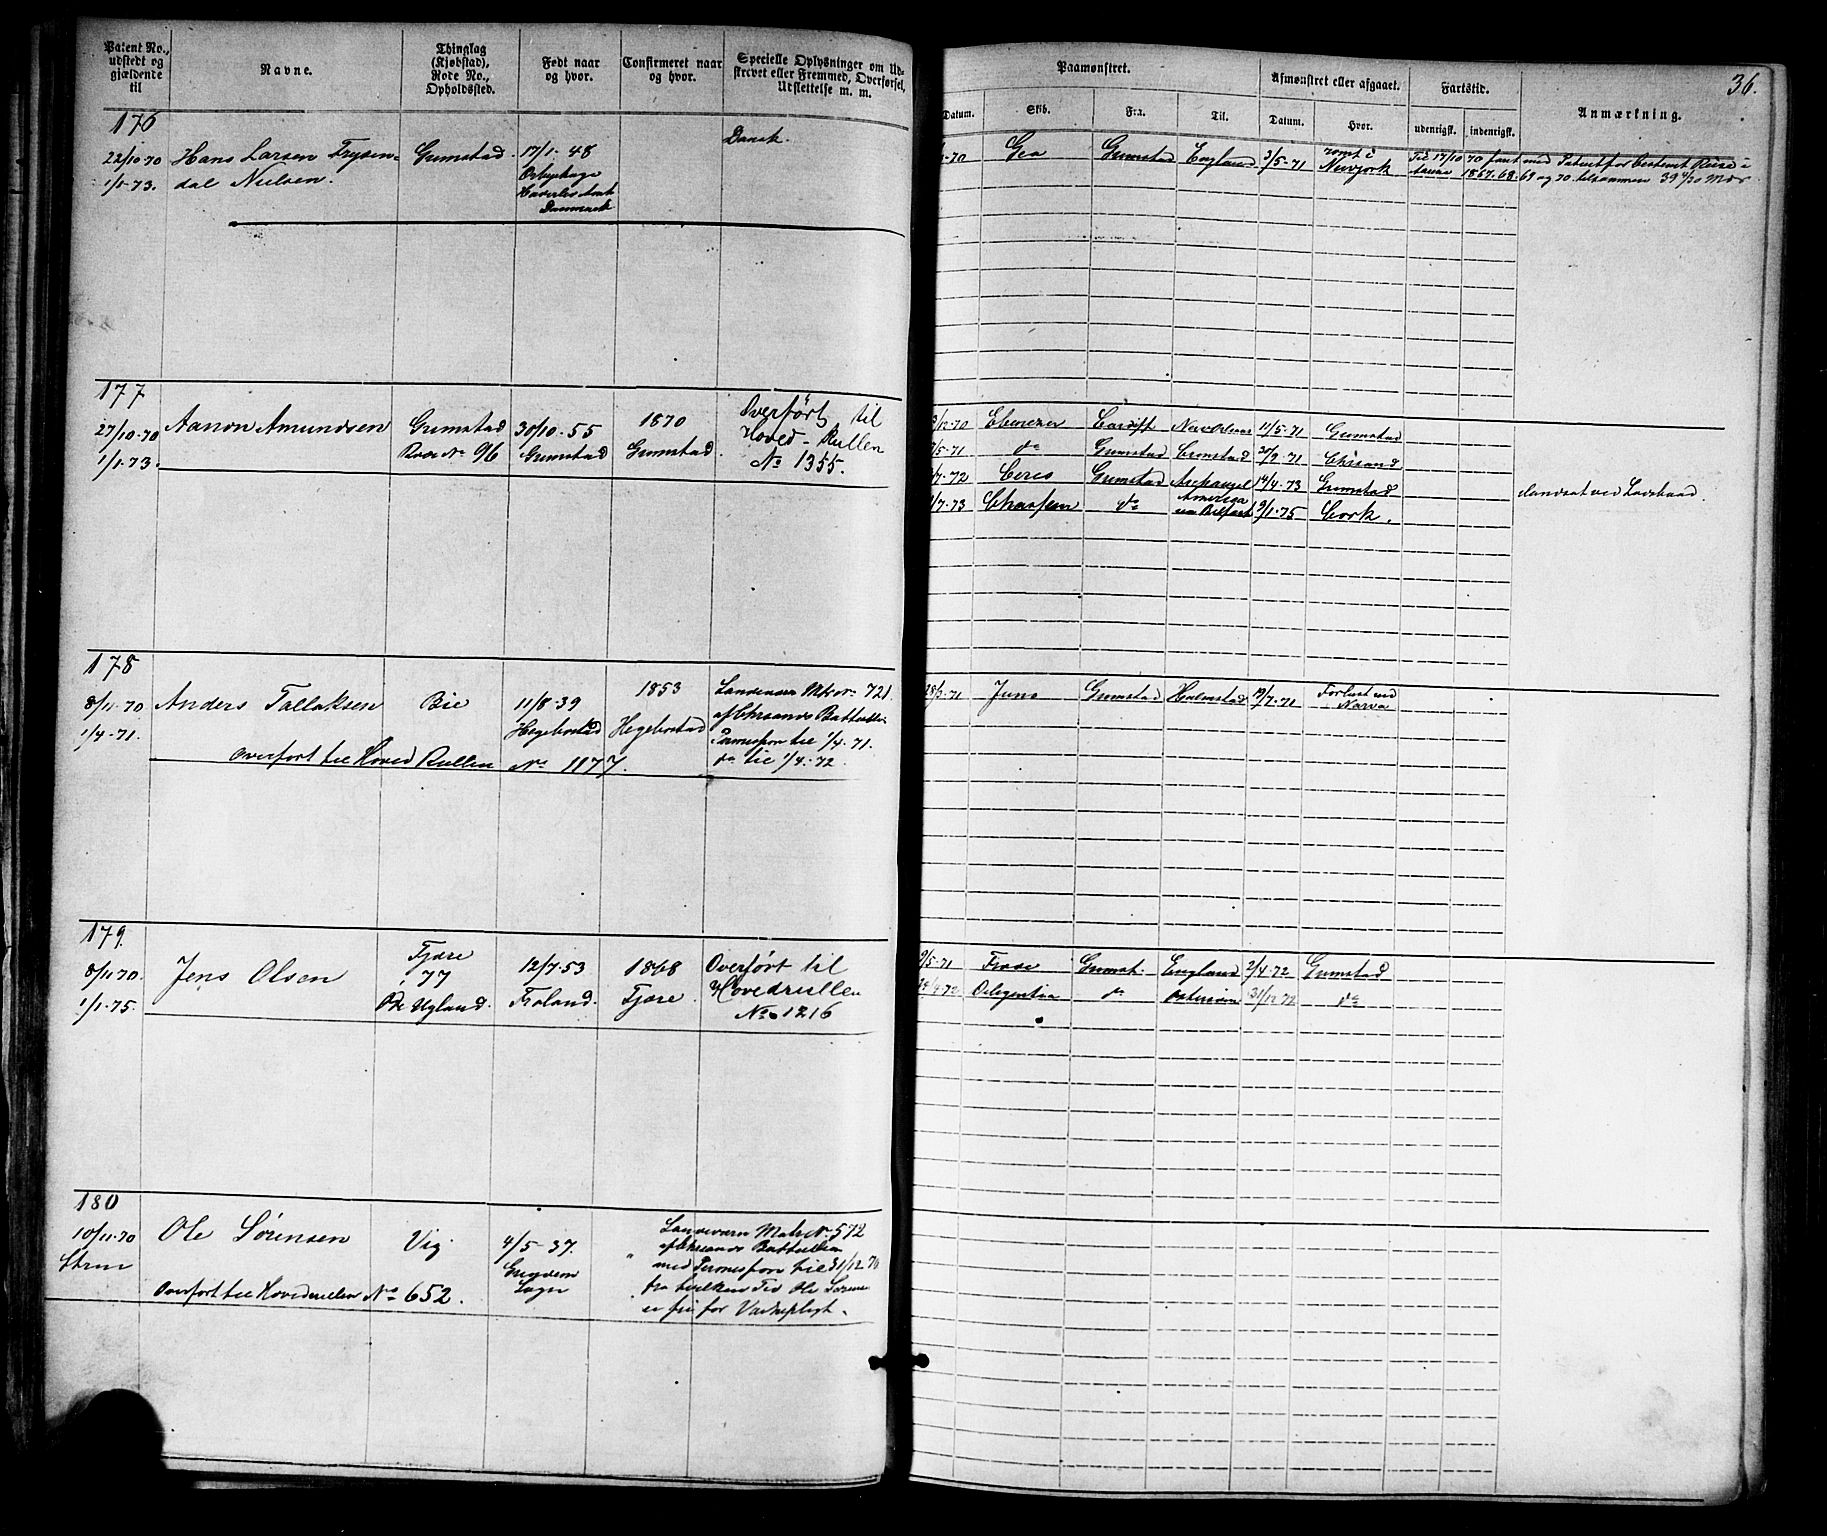 36.
Patent No., udstedt og gjældende til
Navne.
Thinglag (Kjøbstad), Rode No., Opholdssted.
Født naar og hvor.
Confirmeret naar og hvor.
Specielle Oplysninger om Udskrevet eller Fremmed, Overførsel, Udslettelse m. m.
Paamønstret.
Afmønstret eller afgaaet.
Fartstid.
Anmærkning.
Datum. Skib. Fra. Til. Datum. Hvor. udenrigsk. indenrigsk.
176
22/10-70 Hans Larsen Frysen- Grimstad 17/1-48 Dansk.
1/1-73. dal Nielsen.
Danmark
70 Gea Grimstad England 3/5-71 rømt i Newyork
Til 17/10 70 faret med Patent for bestemt Reise i
1867. 68. 69 og 70 tilsammen 39 Mdr
177
27/10-70 Aanon Amundsen Grimstad 30/10-55 1870 Overført til
1/1-73. Rode No 96 Grimstad Grimstad. Hoved-Rullen
No 1355.
3/12-70 Ebenezer Cardiff New Orleans 11/5-71 Grimstad
/5-71 do Grimstad Cronstad 30/9-71 Chrsand
/7-72 Ceres Grimstad Archangel 14/4-73 Grimstad
/7-73 do Amerika 9/1-75 Cork.
178
8/11-70 Anders Tallaksen Bie 11/8-39 1853 Landeværn Mtr No 721.
1/4-71. Hegebostad Hegebostad af Chrsands Battallion
Permission til 1/4-71.
do til 1/4-72.
Overført til Hoved Rullen No 1177.
28/3-71 Juno Grimstad Halmstad 19/7-71 Forlist ved Narva
179.
8/11-70. Jens Olsen Fjære 12/7-53 1868 Overført til
77
1/1-75. Ugland. Froland. Fjære. Hovedrullen
No 1216
9/5-71 Grimst. England 2/4-72 Grimstad
/4-72 Deligentia do Østersøen 31/12-72 do
180
10/11-70 Ole Sörensen Vig 4/5-37. " Landeværn Matr No 572
af Chrsands Battallion
med Permission til 31/12 70
Sogn fra hvilken Tid Ole Sörensen
er fri for Værnepligt.
Overført til Hovedrullen No 652.